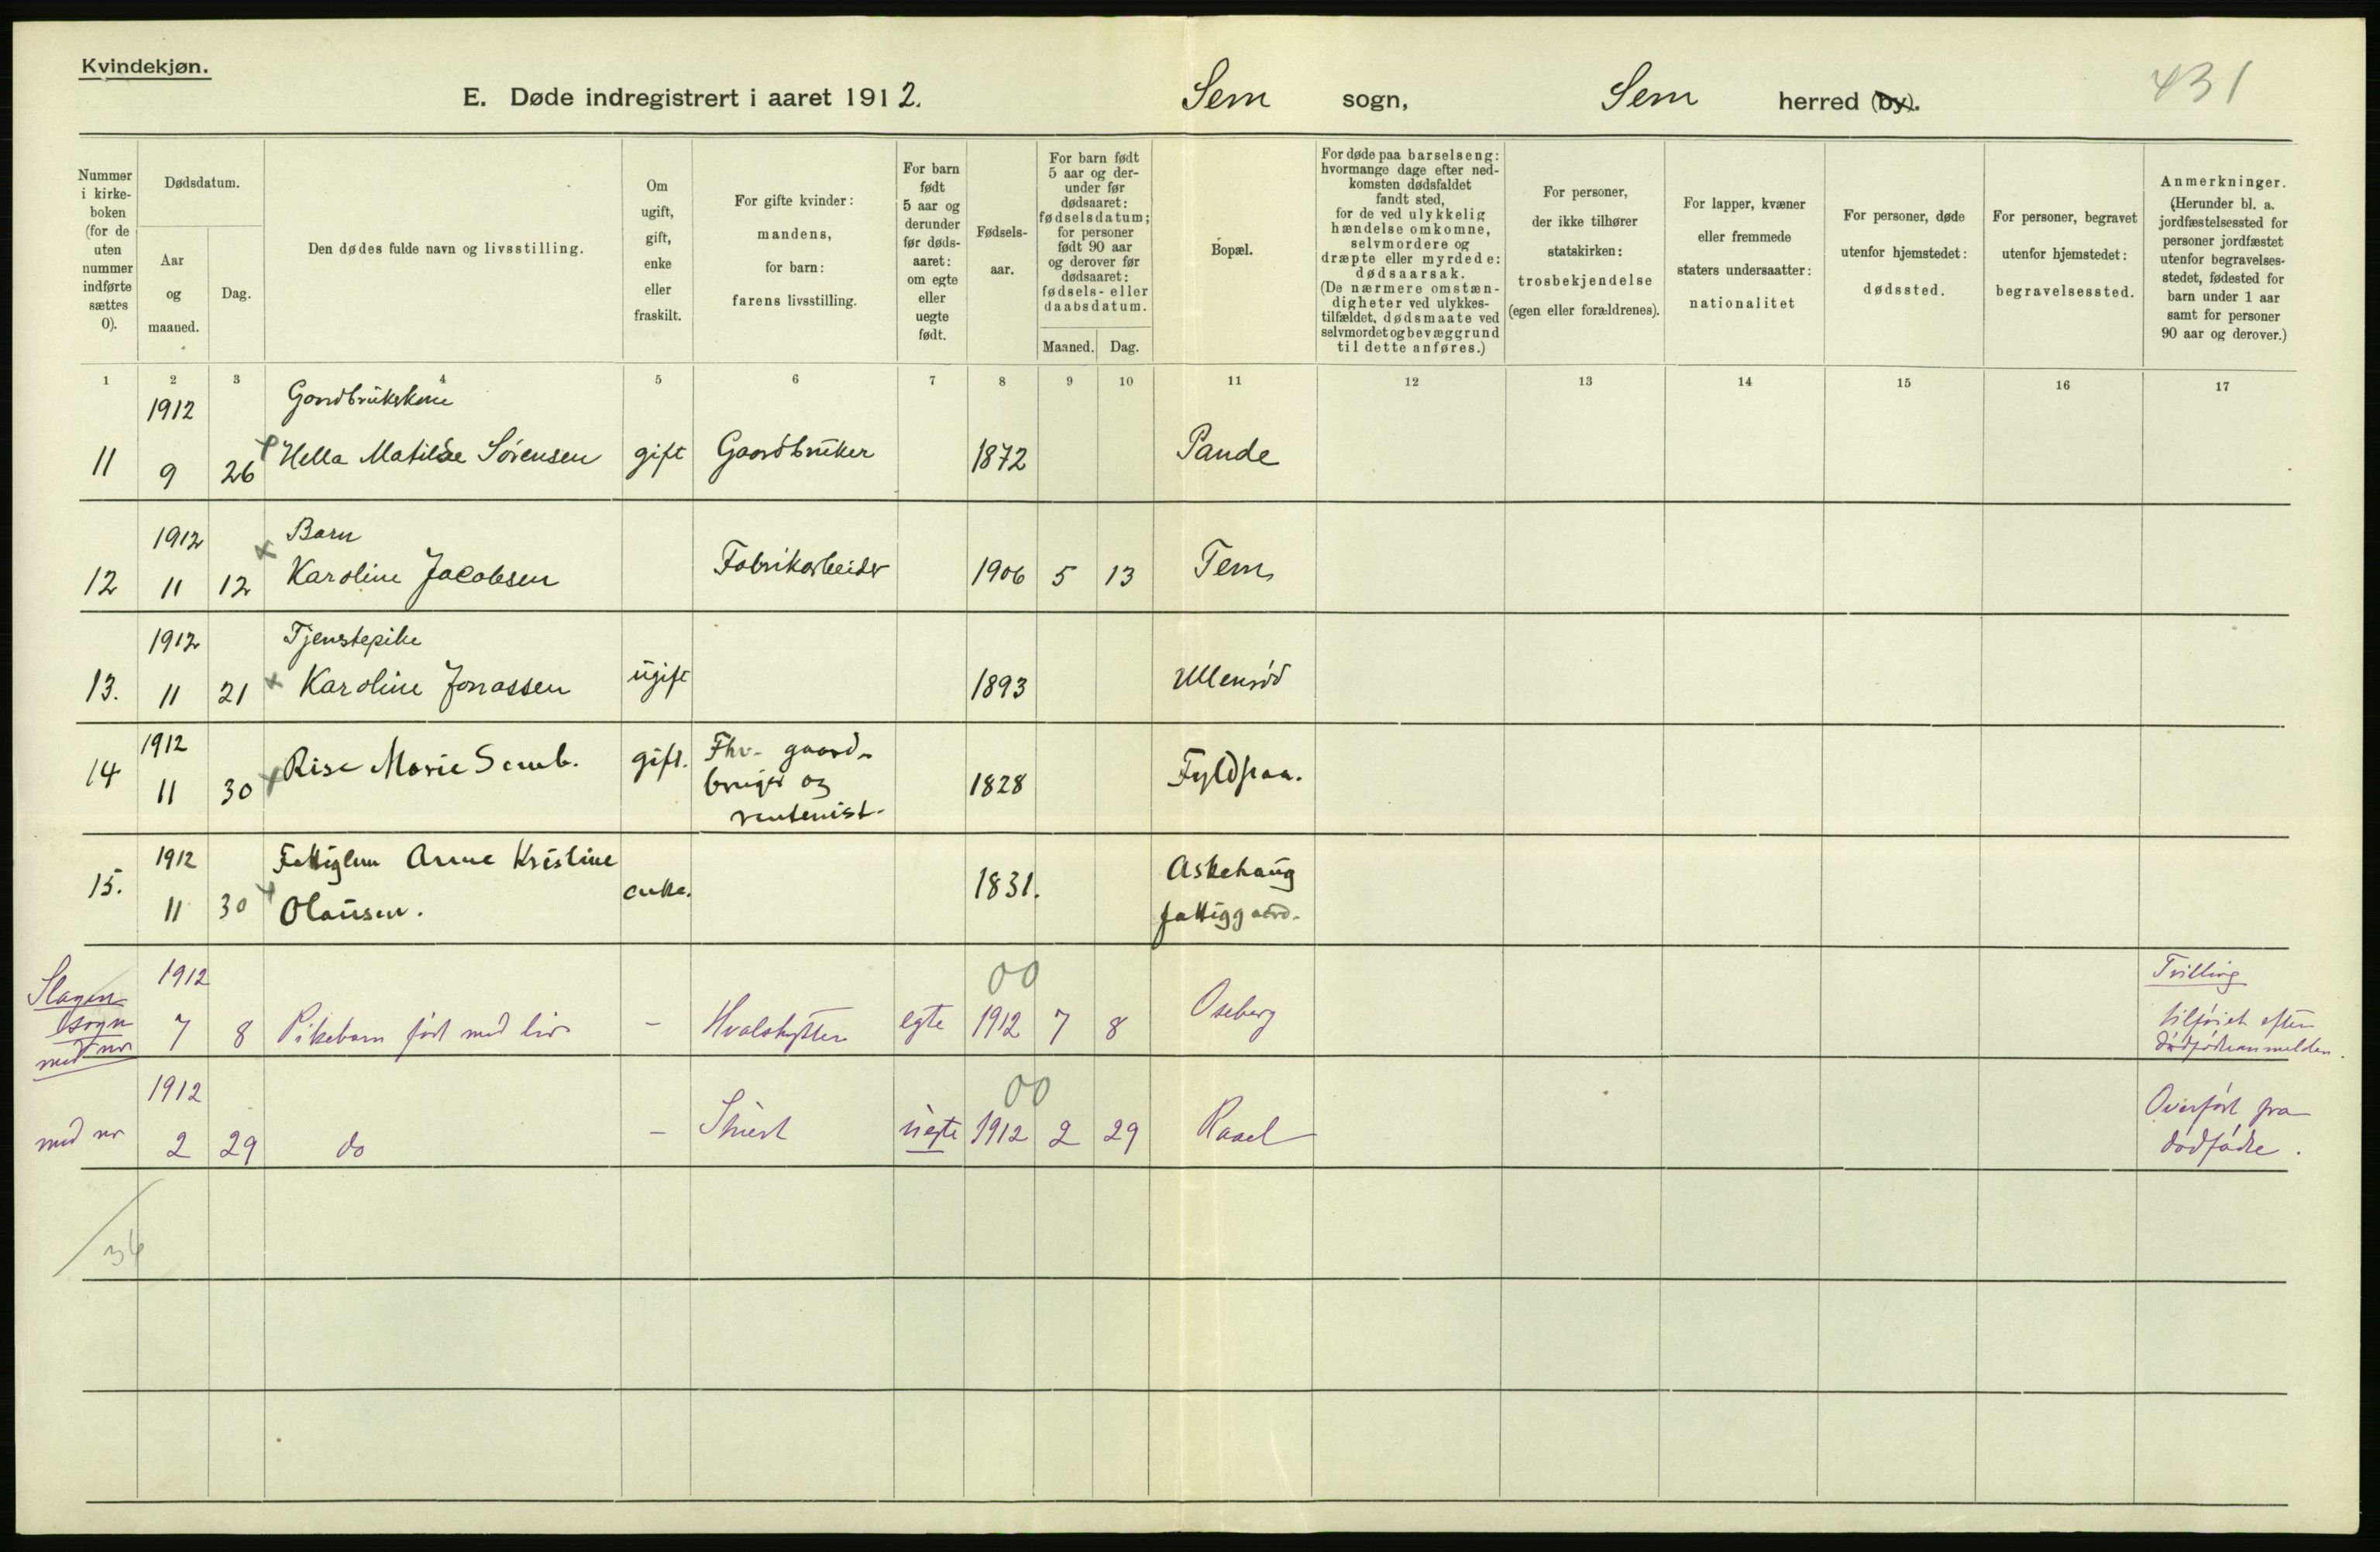 Kvindekjøn.
E. Døde indregistrert i aaret 1912.
Sem sogn,
Sem herred (by).
431
Nummer
i kirke-
boken
(for de
uten
nummer
indførte
sættes
0).
Dødsdatum.
Aar
og
maaned.
Dag.
Den dødes fulde navn og livsstilling.
Om
ugift,
gift,
enke
eller
fraskilt.
For gifte kvinder:
mandens,
for barn:
farens livsstilling.
For barn
født
5 aar og
derunder
før døds-
aaret:
om egte
eller
uegte
født.
Fødsels-
aar.
For barn født
5 aar og der-
under før
dødsaaret:
fødselsdatum;
for personer
født 90 aar
og derover før
dødsaaret:
fødsels- eller
daabsdatum.
Maaned.
Dag.
Bopæl.
For døde paa barselseng:
hvormange dage efter ned-
komsten dødsfaldet
fandt sted,
for de ved ulykkelig
hændelse omkomne,
selvmordere og
dræpte eller myrdede:
dødsaarsak.
(De nærmere omstæn-
digheter ved ulykkes-
tilfældet, dødsmaate ved
selvmordet og bevæggrund
til dette anføres.)
For personer,
der ikke tilhører
statskirken:
trosbekjendelse
(egen eller forældrenes).
For lapper, kvæner
eller fremmede
staters undersaatter:
nationalitet
For personer, døde
utenfor hjemstedet:
dødssted.
For personer, begravet
utenfor hjemstedet:
begravelsessted.
Anmerkninger.
(Herunder bl. a.
jordfæstelsessted for
personer jordfæstet
utenfor begravelses-
stedet, fødested for
barn under 1 aar
samt for personer
90 aar og derover.)
1 2 3 4 5 6 7 8 9 10 11 12 13 14 15 16 17
1912 Gaardbrukskone
11 9 26 Hella Matilde Sørensen gift Gaardbruker 1872 Pande
1912 Barn
12 11 12 Karoline Jacobsen Fabrikarbeider 1906 5 13 Tem
1912 Tjenstepike
13. 11 21 Karoline Jonassen ugift 1893 Ullensød
1912 Fhv. gaard-
14 11 30 Rise Marie Semb. gift. bruger og 1828
rentenist.
1912 Fattiglem Anne Kristine Askehaug
15. 11 30 Olausen. enke. 1831. fattiggaard.
00
Slagen 1912 Tvilling
sogn 7 8 Pikebarn født med liv - Hvalskytter egte 1912 7 8 Oseberg tilføiet efter
med nr dødfødteanmelden.
00
1912 Overført fra
med nr 2 29 do - Stuert uegte 1912 2 29 Rael dødfødte.
34